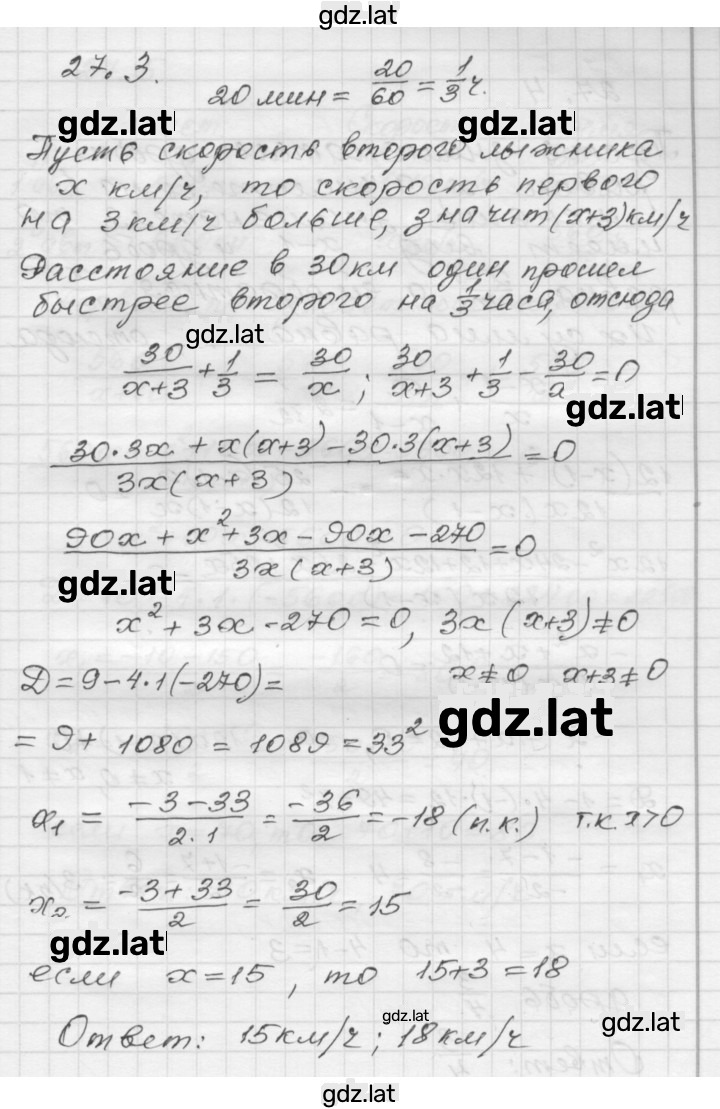 gdz.lat
27.3.
20 мин = 20/60 = 1/3 ч.
gdz.lat gdz.lat
Пусть скорость второго лыжника
x км/ч, то скорость первого
на 3 км/ч больше, значит (x+3) км/ч
Расстояние в 30 км один прошел
быстрее второго на 1/3 часа, отсюда
gdz.lat
30/(x+3) + 1/3 = 30/x ; 30/(x+3) + 1/3 - 30/x = 0
gdz.lat
(30·3x + x(x+3) - 30·3(x+3))/(3x(x+3)) = 0
(90x + x² + 3x - 90x - 270)/(3x(x+3)) = 0
gdz.lat
x² + 3x - 270 = 0, 3x(x+3) ≠ 0
D = 9 - 4·1(-270) = x ≠ 0 x+3 ≠ 0
gdz.lat
= 9 + 1080 = 1089 = 33²
x₁ = (-3-33)/(2·1) = -36/2 = -18 (п.к.) т.к x>0
x₂ = (-3+33)/2 = 30/2 = 15
gdz.lat
если x = 15, то 15+3 = 18
gdz.lat gdz.lat
Ответ: 15 км/ч ; 18 км/ч
gdz.lat